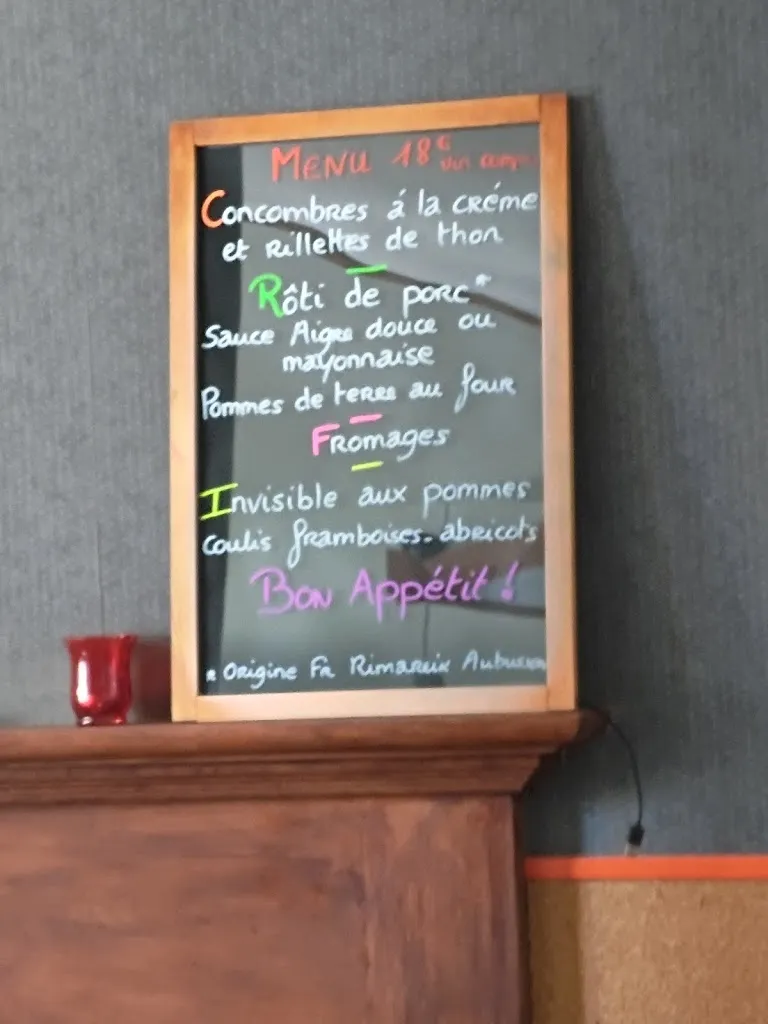 MENU 18€ vin compris
Concombres á la créme
et Rillettes de thon
Rôti de porc*
Sauce Aigre douce ou
mayonnaise
Pommes de terre au four
Fromages
Invisible aux pommes
coulis framboises-abricots
Bon Appétit !
* Origine Fr Rimareix Aubusson